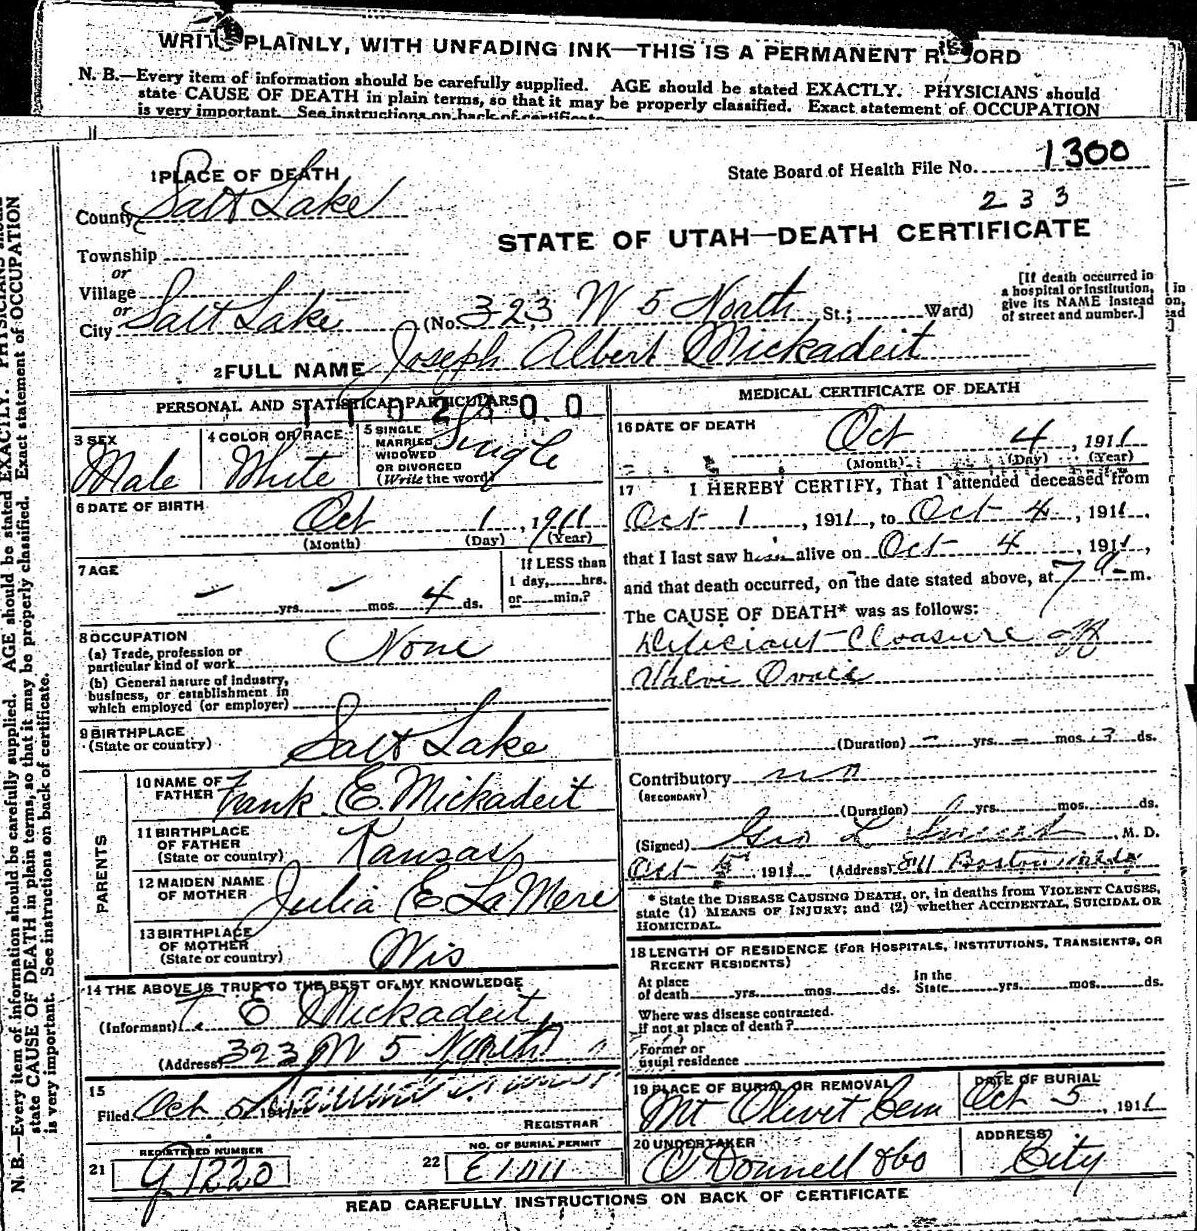 WRITE PLAINLY, WITH UNFADING INK—THIS IS A PERMANENT RECORD
N. B.—Every item of information should be carefully supplied. AGE should be stated EXACTLY. PHYSICIANS should
state CAUSE OF DEATH in plain terms, so that it may be properly classified. Exact statement of OCCUPATION
is very important. See instructions on back of certificate.
1 PLACE OF DEATH
State Board of Health File No. 1300
233
County Salt Lake
STATE OF UTAH—DEATH CERTIFICATE
Township
or
Village
or
City Salt Lake (No. 323 W 5 North St.; Ward)
[If death occurred in
a hospital or institution,
give its NAME instead
of street and number.]
2 FULL NAME Joseph Albert Mickadeit
PERSONAL AND STATISTICAL PARTICULARS
1102800
3 SEX
Male
4 COLOR OR RACE
White
5 SINGLE
MARRIED
WIDOWED
OR DIVORCED
(Write the word)
Single
6 DATE OF BIRTH
Oct 1, 1911
(Month) (Day) (Year)
7 AGE
— yrs. — mos. 4 ds.
If LESS than
1 day, hrs.
or min.?
8 OCCUPATION
(a) Trade, profession or
particular kind of work
None
(b) General nature of industry,
business, or establishment in
which employed (or employer)
9 BIRTHPLACE
(State or country)
Salt Lake
PARENTS
10 NAME OF
FATHER
Frank E. Mickadeit
11 BIRTHPLACE
OF FATHER
(State or country)
Kansas
12 MAIDEN NAME
OF MOTHER
Julia E LaMere
13 BIRTHPLACE
OF MOTHER
(State or country)
Wis
14 THE ABOVE IS TRUE TO THE BEST OF MY KNOWLEDGE
(Informant) F. E Mickadeit
(Address) 323 W 5 North
15
Filed Oct 5 1911
REGISTRAR
21 REGISTERED NUMBER
22 NO. OF BURIAL PERMIT
MEDICAL CERTIFICATE OF DEATH
16 DATE OF DEATH
Oct 4, 1911
(Month) (Day) (Year)
17 I HEREBY CERTIFY, That I attended deceased from
Oct 1, 1911, to Oct 4, 1911,
that I last saw him alive on Oct 4, 1911,
and that death occurred, on the date stated above, at 7 a m.
The CAUSE OF DEATH* was as follows:
Deficient Cloasure off
Valve Ovale
(Duration) — yrs. — mos. 3 ds.
Contributory
(SECONDARY)
(Duration) yrs. mos. ds.
(Signed) Geo L M. D.
Oct 5 1911 (Address) 811 Boston Bldg
* State the DISEASE CAUSING DEATH, or, in deaths from VIOLENT CAUSES,
state (1) MEANS OF INJURY; and (2) whether ACCIDENTAL, SUICIDAL OR
HOMICIDAL.
18 LENGTH OF RESIDENCE (FOR HOSPITALS, INSTITUTIONS, TRANSIENTS, OR
RECENT RESIDENTS)
At place
of death yrs. mos. ds.
In the
State yrs. mos. ds.
Where was disease contracted.
if not at place of death?
Former or
usual residence
19 PLACE OF BURIAL OR REMOVAL
Mt Olivet Cem
DATE OF BURIAL
Oct 5, 1911
20 UNDERTAKER
O'Donnell &Co
ADDRESS
City
READ CAREFULLY INSTRUCTIONS ON BACK OF CERTIFICATE
N. B.—Every item of information should be carefully supplied. AGE should be stated EXACTLY. PHYSICIANS should
state CAUSE OF DEATH in plain terms, so that it may be properly classified. Exact statement of OCCUPATION
is very important. See instructions on back of certificate.